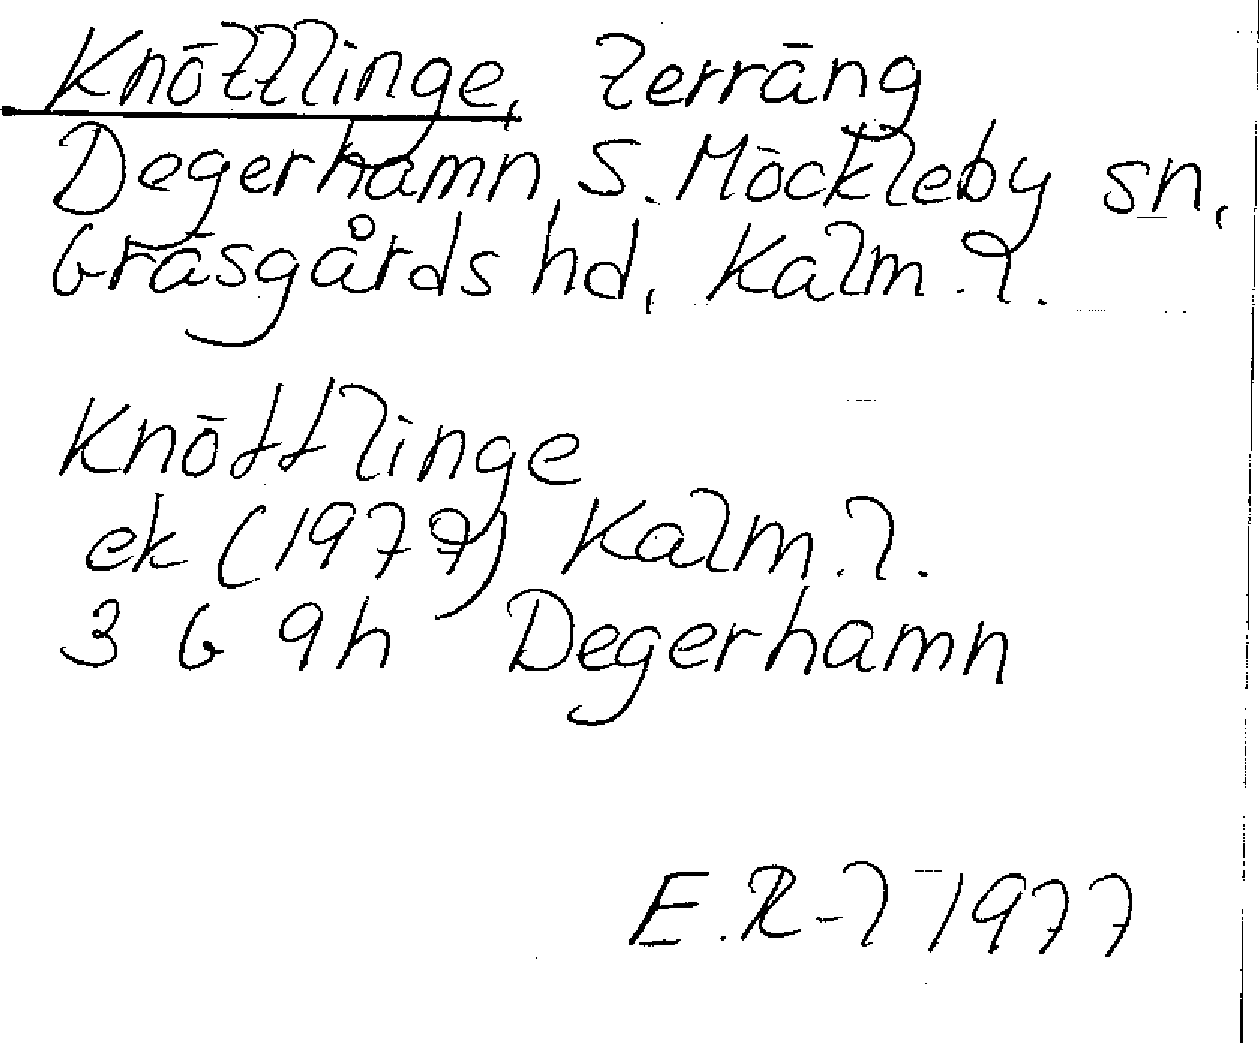 Knöttlinge, terräng
Degerhamn, S. Möckleby sn,
Gräsgårds hd, Kalm. l.
Knöttlinge
ek (1977) Kalm. l.
3 G 9h Degerhamn
E.R-l 1977